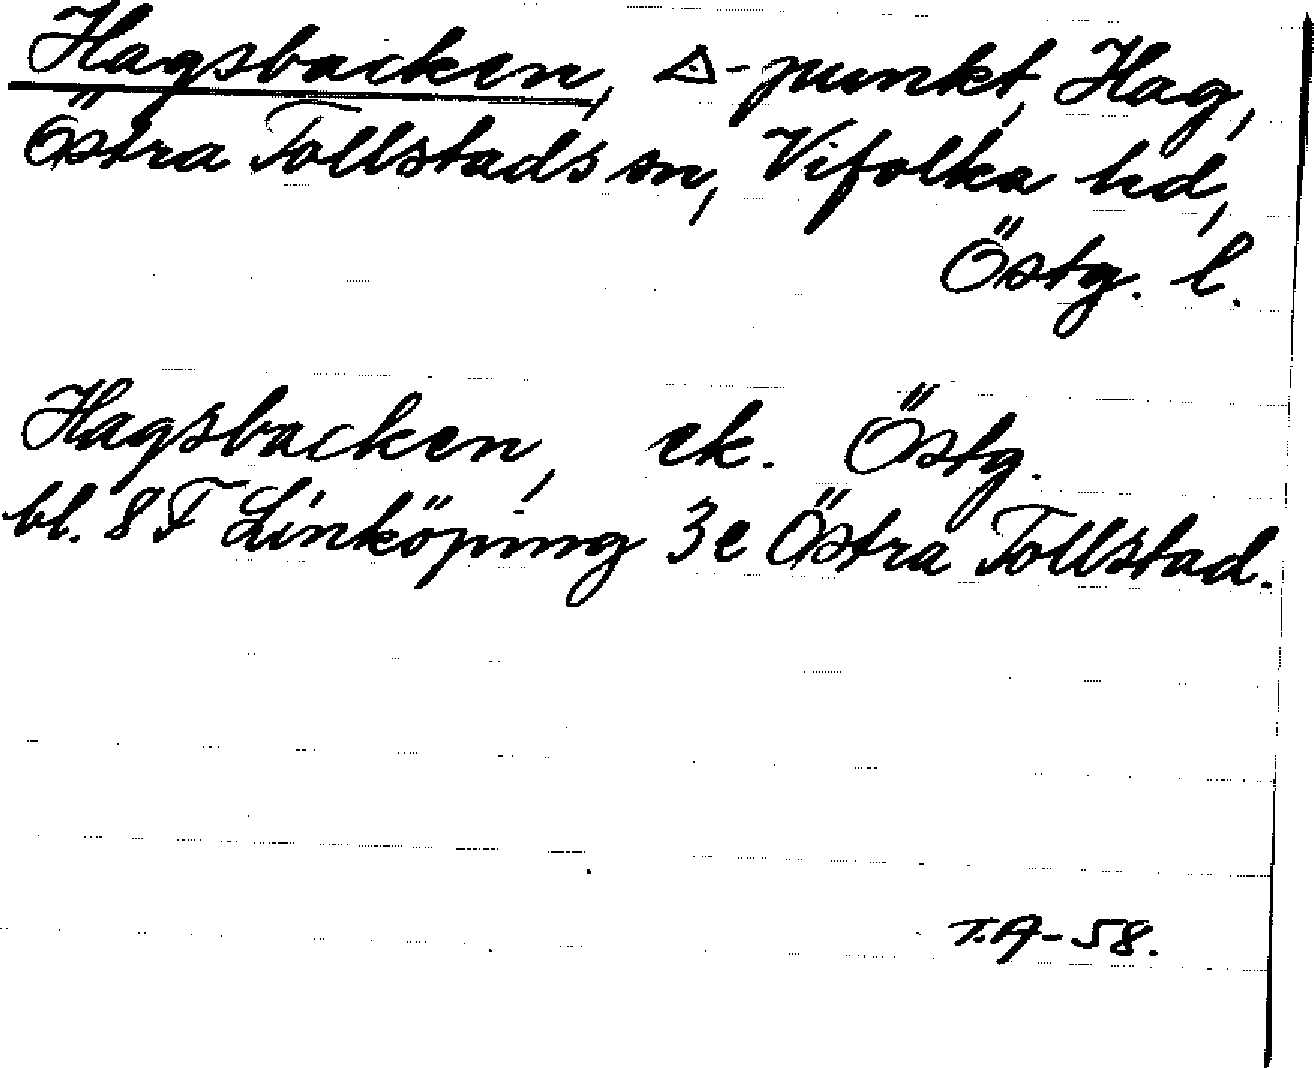 Hagsbacken, △-punkt, Hag,
Östra Tollstads sn, Vifolka hd,
Östg. l.
Hagsbacken, ek. Östg.
bl. 8F Linköping 3e Östra Tollstad.
T.A-58.